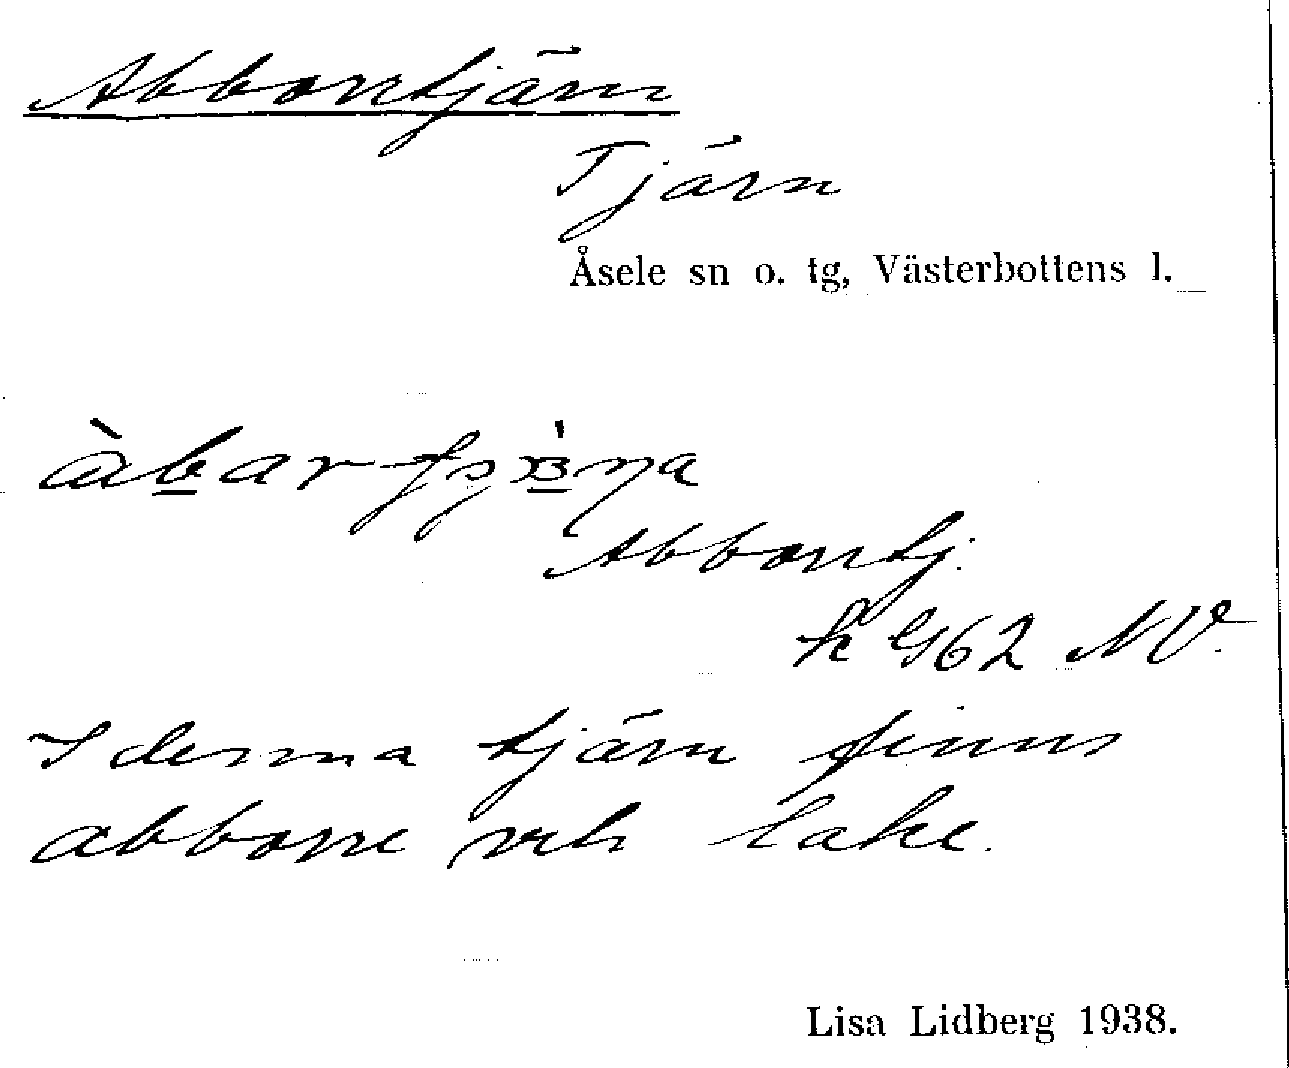 Abborrtjärn
Tjärn
Åsele sn o. tg, Västerbottens l.
Abborrtj.
k G62 NV.
I denna tjärn finns
abborre och lake.
Lisa Lidberg 1938.